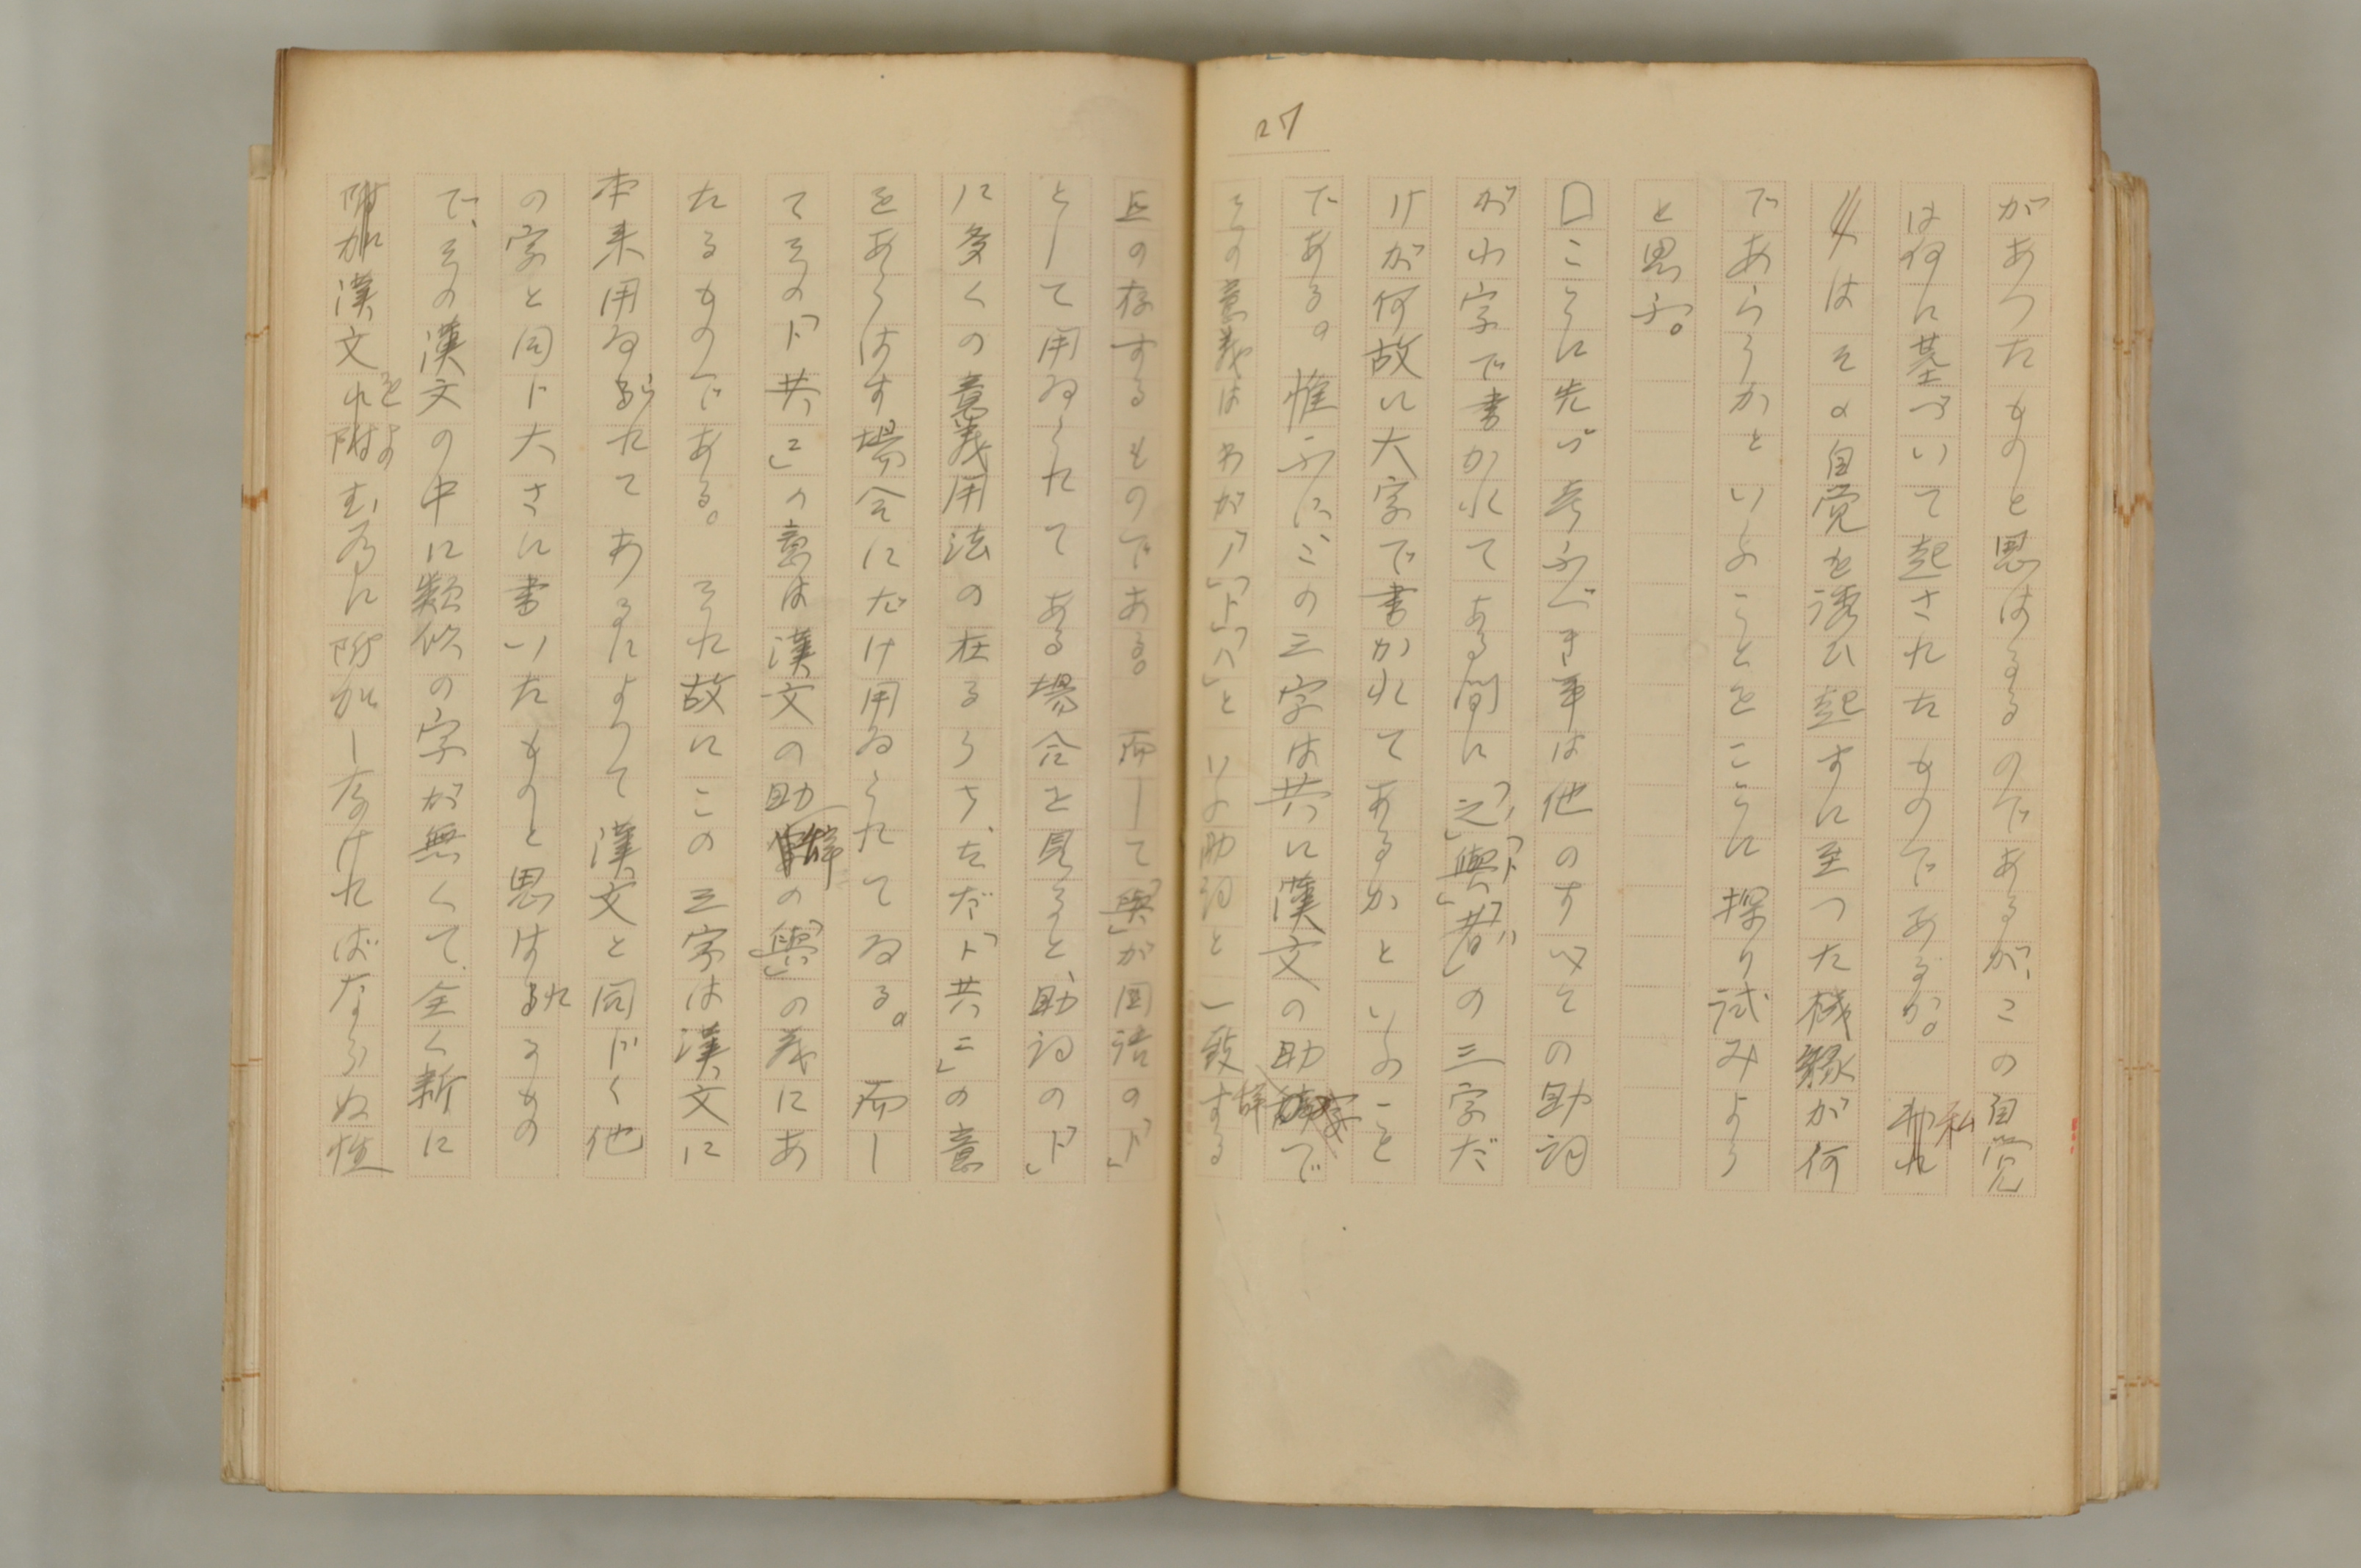 27
があつたものと思はるるのであるが、この自覚
は何に基づいて起されたものであるか。私
はその自覚を誘ひ起すに至つた機縁が何
であらうかといふことをここに探り試みよう
と思ふ。
ここに先づ考ふべき事は他のすべての助詞
が小字で書かれてある間に「之」「與」「者」の三字だ
けが何故に大字で書かれてあるかといふこと
である。惟ふに、この三字は共に漢文の助字で
その意義はわが「ノ」「ト」「ハ」といふ助詞と一致する
点の存するものである。而して「與」が国語の「ト」
として用ゐられてある場合を見ると、助詞の「ト」
に多くの意義用法の在るうち、ただ「ト共ニ」の意
をあらはす場合にだけ用ゐられてゐる。而し
てその「ト共ニ」の意は漢文の助辞の「與」の義にあ
たるものである。それ故にこの三字は漢文に
本来用ゐられてあるによつて漢文と同じく他
の字と同じ大さに書いたものと思はれるもの
で、その漢文の中に類似の字が無くて、全く新に
漢文をよむ為に附加しなければならぬ性